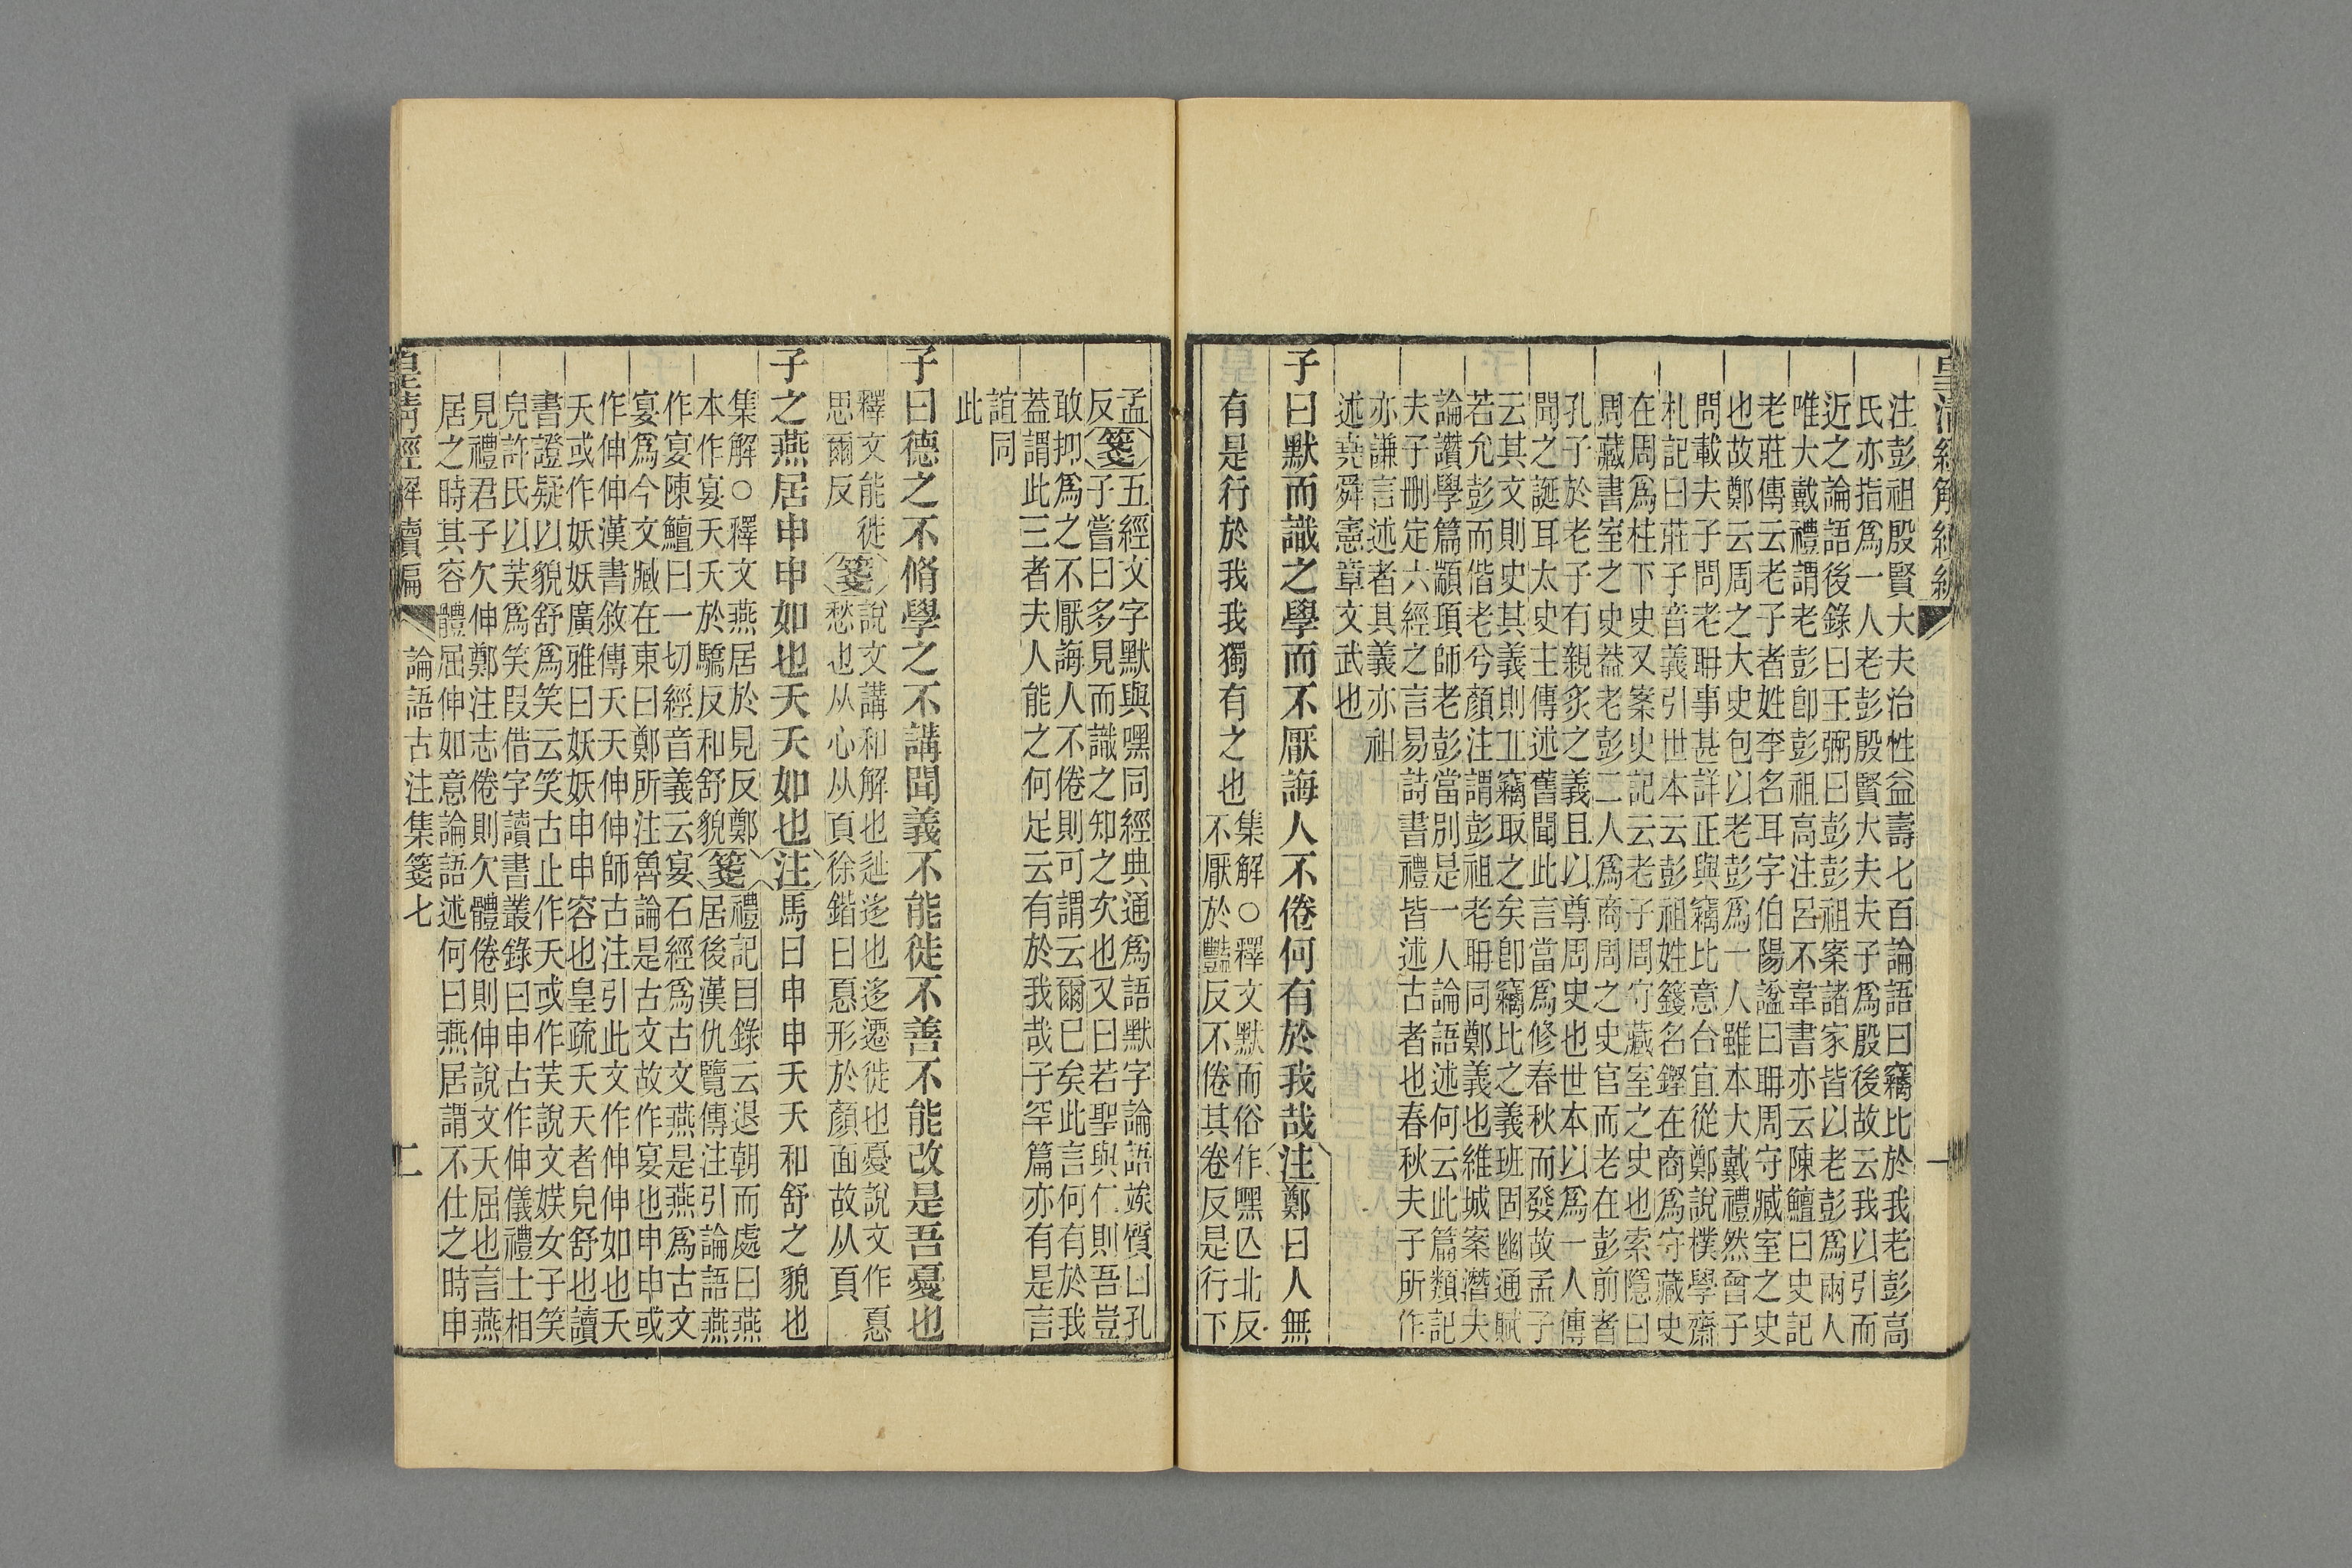 皇清經解續編
注彭祖殷賢大夫治性益壽七百論語曰竊比於我老彭高
氏亦指爲一人老彭殷賢大夫夫子爲殷後故云我以引而
近之論語後錄曰王弼曰彭彭祖案諸家皆以老彭爲兩人
唯大戴禮謂老彭卽彭祖高注呂不韋書亦云陳鱣曰史記
老莊傳云老子者姓李名耳字伯陽諡曰耼周守藏室之史
也故鄭云周之大史包以老彭爲一人雖本大戴禮然曾子
問載夫子問老耼事甚詳正與竊比意合宜從鄭說樸學齋
札記曰莊子音義引世本云彭祖姓籛名鏗在商爲守藏史
在周爲柱下史又案史記云老子周守藏室之史也索隱曰
周藏書室之史葢老彭二人爲商周之史官而老在彭前者
孔子於老子有親炙之義且以尊周史也世本以爲一人傳
聞之誕耳太史主傳述舊聞此言當爲修春秋而發故孟子
云其文則史其義則丘竊取之矣卽竊比之義班固幽通賦
若允彭而偕老兮顏注謂彭祖老耼同鄭義也維城案潛夫
論讚學篇顓頊師老彭當別是一人論語述何云此篇類記
夫子刪定六經之言易詩書禮皆述古者也春秋夫子所作
亦謙言述者其義亦祖
述堯舜憲章文武也
子曰默而識之學而不厭誨人不倦何有於我哉注鄭曰人無
有是行於我我獨有之也集解○釋文默而俗作嘿亾北反
不厭於豔反不倦其卷反是行下
孟
反箋五經文字默與嘿同經典通爲語默字論語竢質曰孔
子嘗曰多見而識之知之次也又曰若聖與仁則吾豈
敢抑爲之不厭誨人不倦則可謂云爾已矣此言何有於我
葢謂此三者夫人能之何足云有於我哉子罕篇亦有是言
誼同
此
子曰德之不脩學之不講聞義不能徙不善不能改是吾憂也
釋文能徙
思爾反箋說文講和解也辿迻也迻遷徙也憂說文作惪
愁也从心从頁徐鍇曰惪形於顏面故从頁
子之燕居申申如也夭夭如也注馬曰申申夭夭和舒之貌也
集解○釋文燕居於見反鄭
本作宴夭夭於驕反和舒貌箋禮記目錄云退朝而處曰燕
居後漢仇覽傳注引論語燕
作宴陳鱣曰一切經音義云宴石經爲古文燕是燕爲古文
宴爲今文臧在東曰鄭所注魯論是古文故作宴也申申或
作伸伸漢書敘傳夭夭伸伸師古注引此文作伸伸如也夭
夭或作妖妖廣雅曰妖妖申申容也皇疏夭夭者皃舒也讀
書證疑以貌舒爲笑云笑古止作夭或作芺說文媄女子笑
皃許氏以芺爲笑叚借字讀書叢錄曰申古作伸儀禮士相
見禮君子欠伸鄭注志倦則欠體倦則伸說文夭屈也言燕
居之時其容體屈伸如意論語述何曰燕居謂不仕之時申
皇清經解續編
論語古注集箋七
二